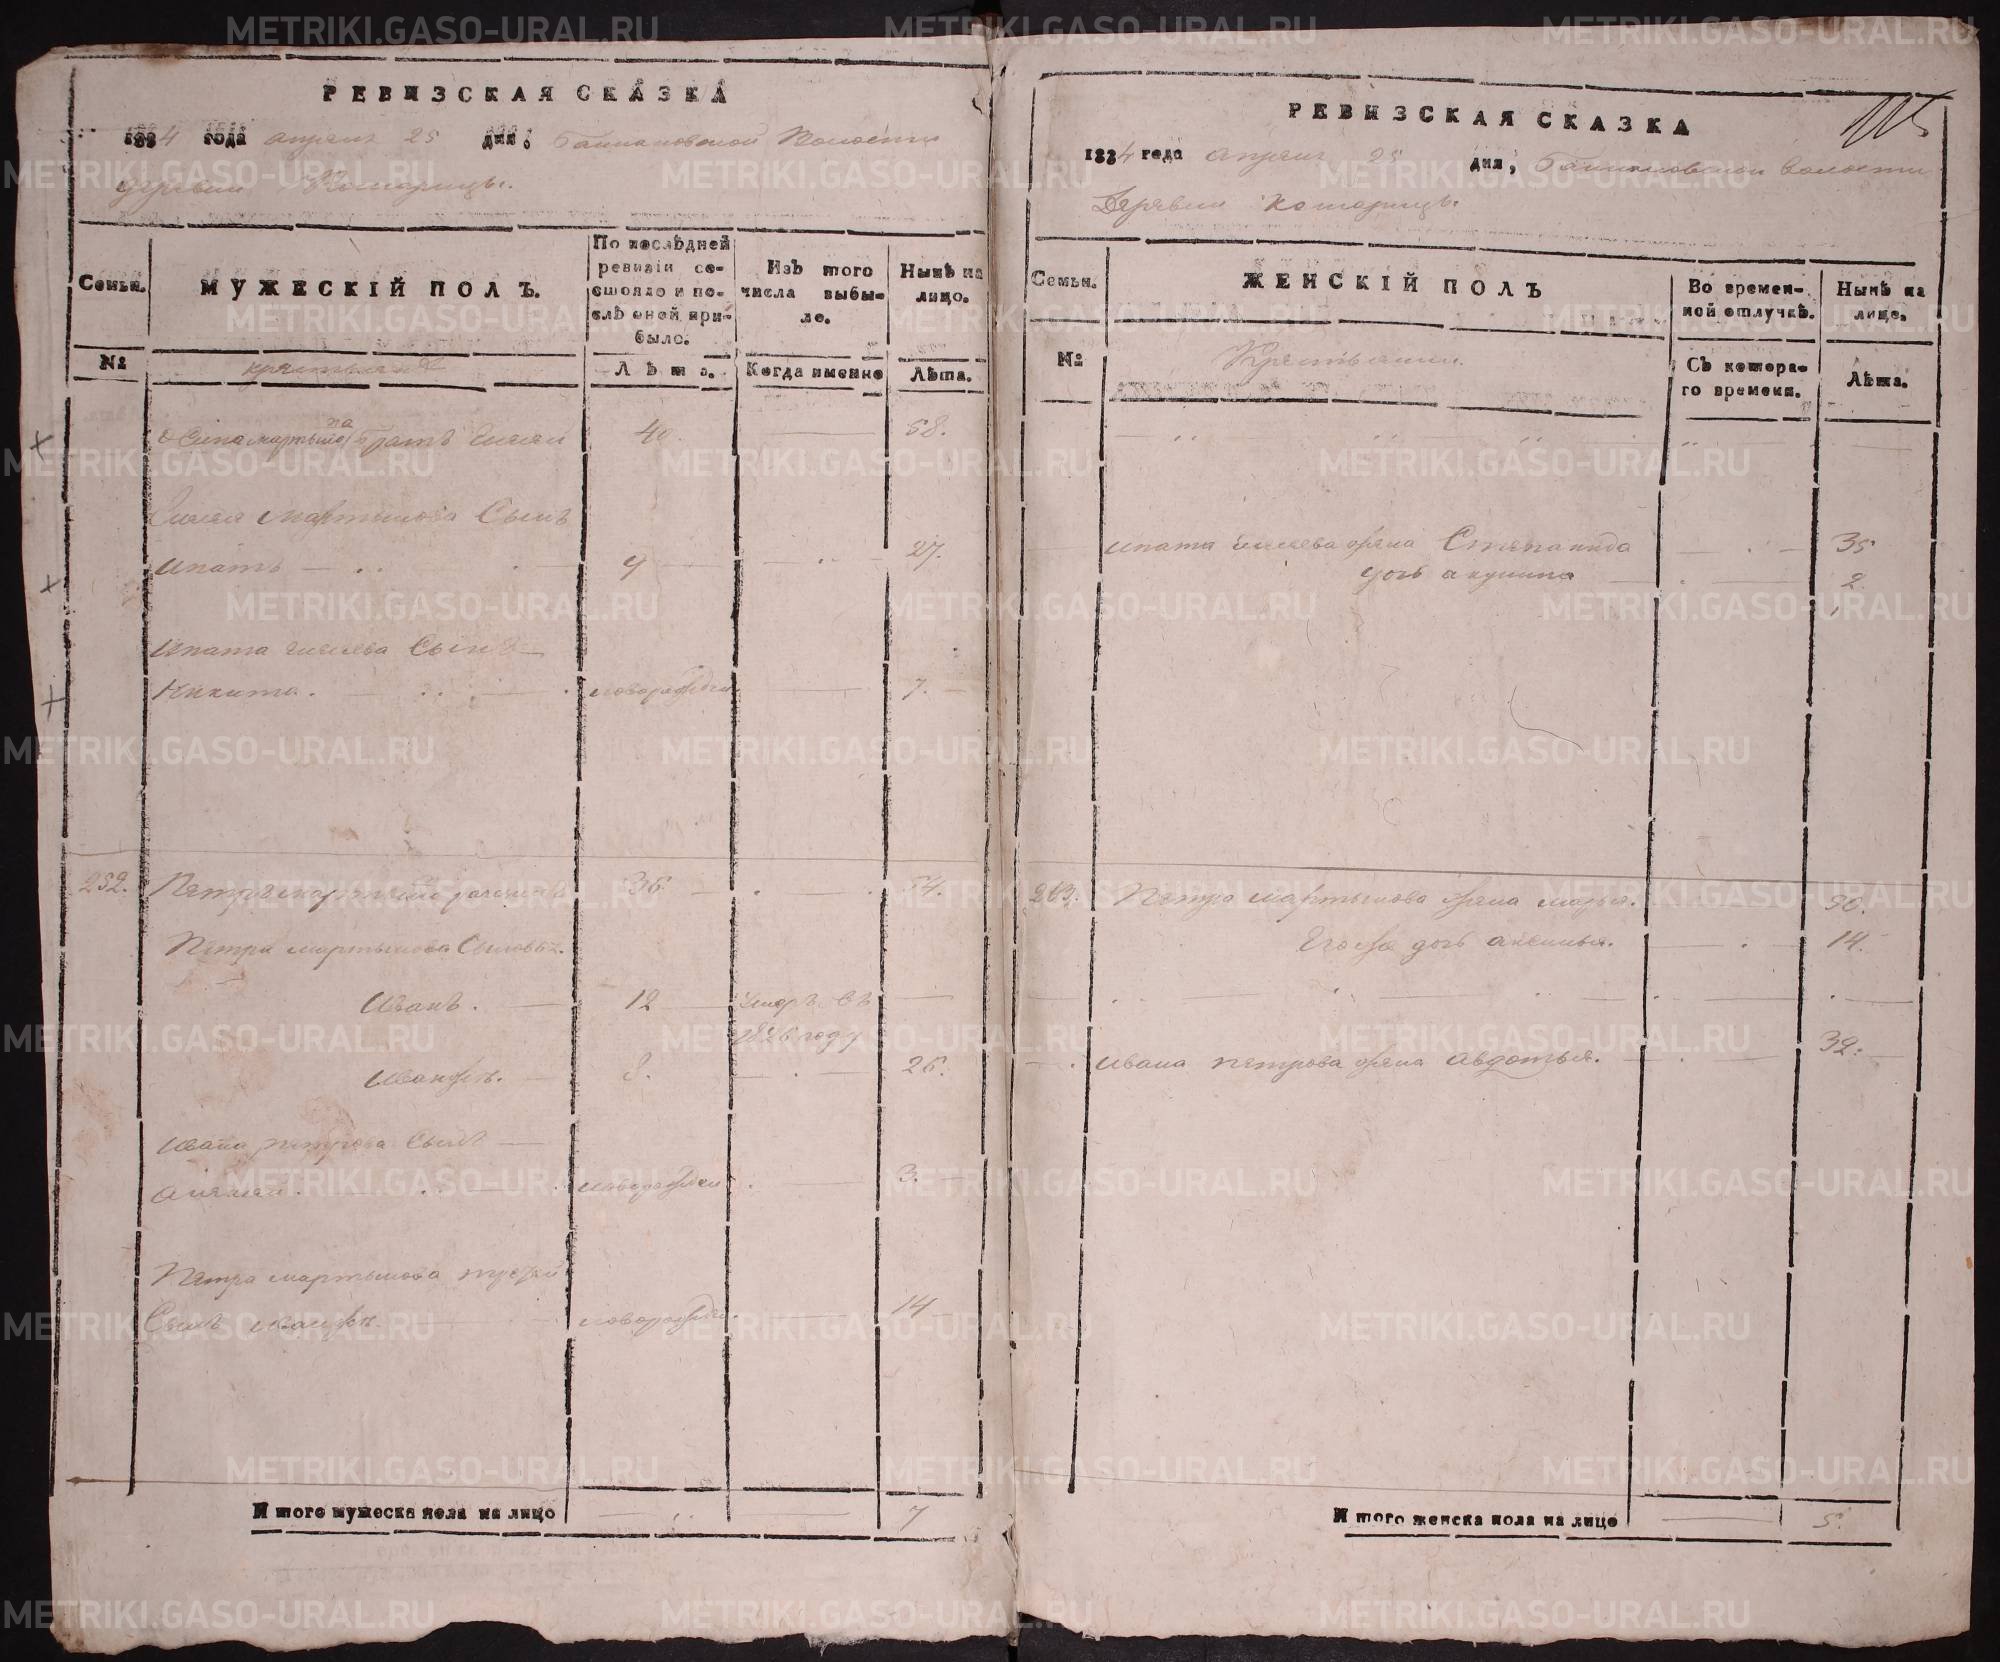 РЕВИЗСКАЯ СКАЗКА
1834 года апреля 25 дня, волости
деревни Кошарицъ.
Семьи.
МУЖЕСКІЙ ПОЛЪ.
По послѣдней ревизіи состояло и послѣ оной прибыло.
Изъ того числа выбыло.
Нынѣ на лицо.
№
крестьяне
Лѣта.
Когда именно
Лѣта.
Братъ 40 58.
Мартынова Сынъ
Ипатъ 9 27.
Ипата Сынъ
Никита. новорожден 7.
252. Петръ Мартынов 36 54.
Петра Мартынова Сыновья.
Иванъ. 12 Умеръ въ
1826 году
Иванже. 8. 26.
Ивана Петрова Сынъ
новорожден 3.
Петра Мартынова
Сынъ новорожден. 14
Итого мужеска пола на лицо 7
РЕВИЗСКАЯ СКАЗКА
1834 года апреля 25 дня, волости
Деревни Кошарицъ.
Семьи.
ЖЕНСКІЙ ПОЛЪ
Во временной отлучкѣ.
Нынѣ на лицо.
№
Крестьянки.
Съ котораго времени.
Лѣта.
Ипата жена Степанида 35
дочь акулина 2
263. Петра Мартынова жена марья. 50.
Егоже дочь аксинья. 14.
Ивана Петрова жена Авдотья. 32.
Итого женска пола на лицо 5.
METRIKI.GASO-URAL.RU